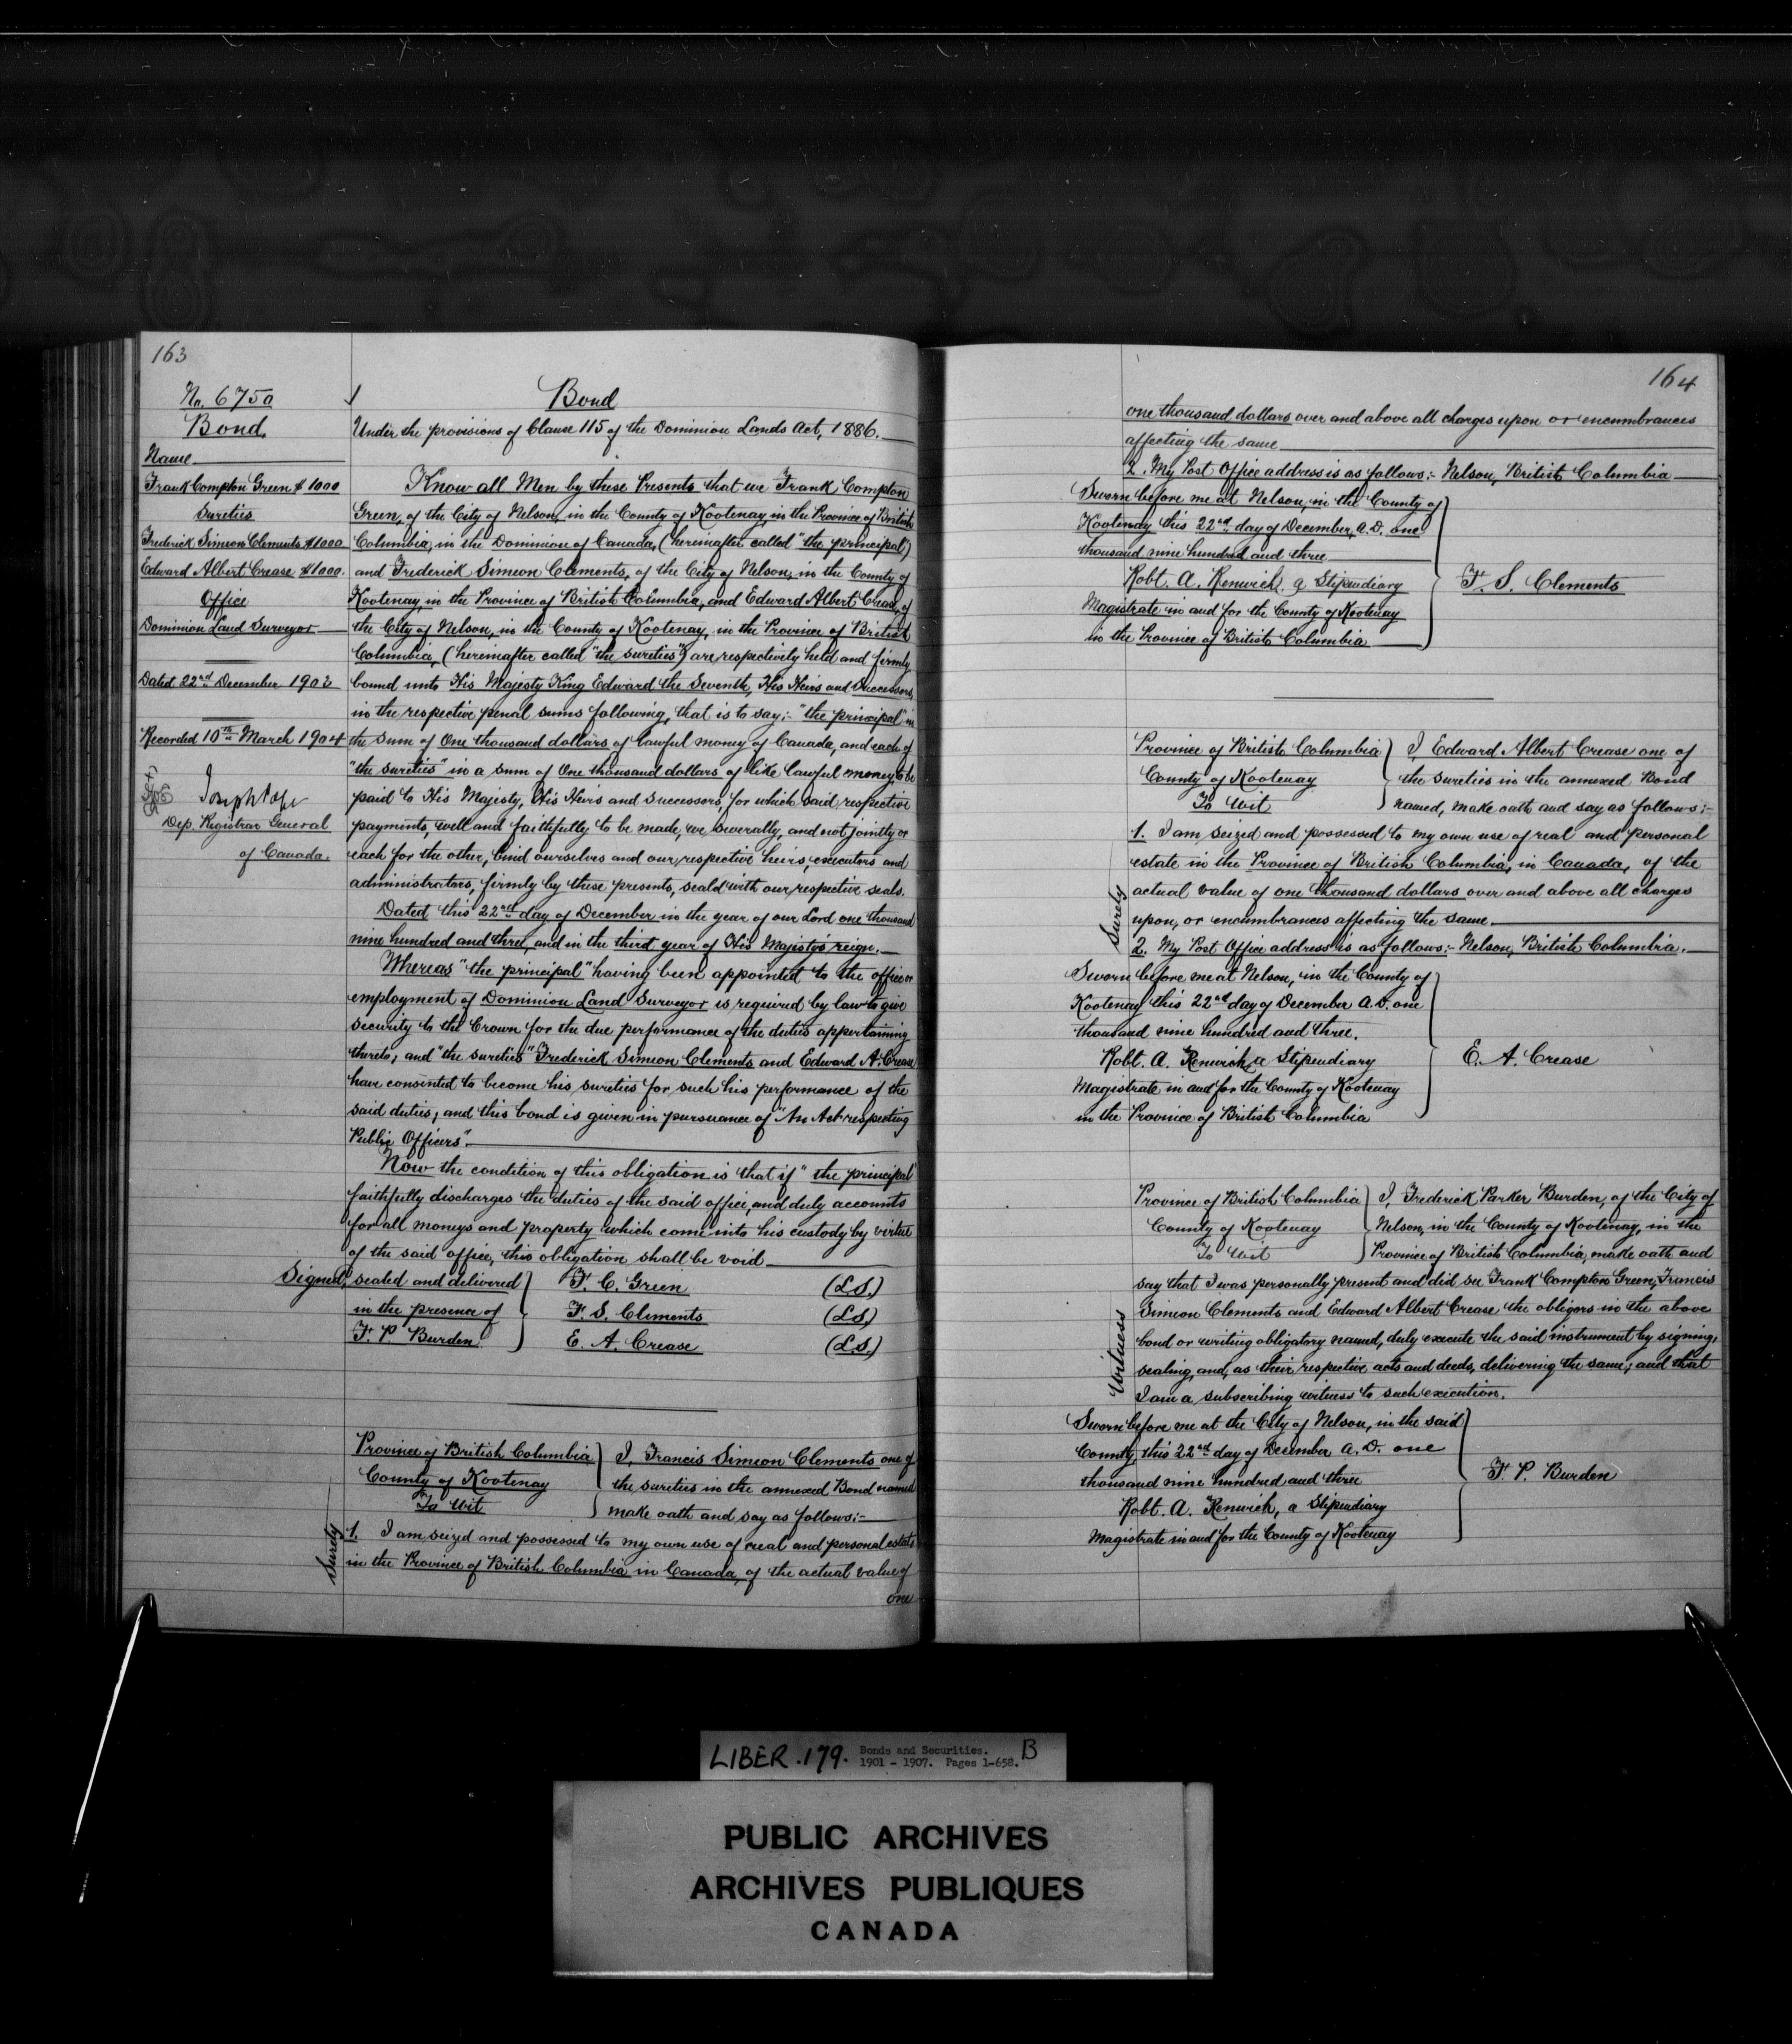 163
No. 6750
Bond.
Name
Frank Compton Green $1000
Sureties
Frederick Simeon Clements $1000
Edward Albert Crease $1000.
Office
Dominion Land Surveyor
Dated 22nd December 1903
Recorded 10th March 1904
Joseph Pope
Dep. Registrar General
of Canada.
Bond
Under the provisions of Clause 115 of the Dominion Lands Act, 1886.
Know all Men by these Presents that we Frank Compton
Green, of the City of Nelson, in the County of Kootenay, in the Province of British
Columbia, in the Dominion of Canada, (hereinafter called "the principal")
and Frederick Simeon Clements, of the City of Nelson, in the County of
Kootenay, in the Province of British Columbia, and Edward Albert Crease, of
the City of Nelson, in the County of Kootenay, in the Province of British
Columbia, (hereinafter called "the sureties") are respectively held and firmly
bound unto His Majesty King Edward the Seventh, His Heirs and Successors,
in the respective penal sums following, that is to say:- "the principal" in
the sum of One thousand dollars of lawful money of Canada, and each of
"the sureties" in a sum of One thousand dollars of like lawful money, to be
paid to His Majesty, His Heirs and Successors, for which said respective
payments, well and faithfully to be made, we severally, and not jointly or
each for the other, bind ourselves and our respective heirs, executors and
administrators, firmly by these presents, seald with our respective seals.
Dated this 22nd day of December in the year of our Lord one thousand
nine hundred and three, and in the third year of His Majesty's reign.
Whereas "the principal" having been appointed to the office or
employment of Dominion Land Surveyor is required by law to give
security to the Crown for the due performance of the duties appertaining
thereto; and "the sureties" Frederick Simeon Clements and Edward A. Crease
have consented to become his sureties for such his performance of the
said duties; and this bond is given in pursuance of "An Act respecting
Public Officers".
Now the condition of this obligation is that if "the principal"
faithfully discharges the duties of the said office, and duly accounts
for all moneys and property which come into his custody by virtue
of the said office, this obligation shall be void
Signed, sealed and delivered
in the presence of
F. P. Burden
F. C. Green (L.S.)
F. S. Clements (L.S.)
E. A. Crease (L.S.)
Province of British Columbia
County of Kootenay
To Wit
I, Francis Simeon Clements one of
the sureties in the annexed Bond named
make oath and say as follows:-
Surety
1. I am seized and possessed to my own use of real and personal estate
in the Province of British Columbia in Canada, of the actual value of
one
164
one thousand dollars over and above all charges upon or encumbrances
affecting the same
2. My Post Office address is as follows:- Nelson, British Columbia
Sworn before me at Nelson, in the County of
Kootenay this 22nd day of December, A.D. one
thousand nine hundred and three
Robt. A. Renwick, a Stipendiary
Magistrate in and for the County of Kootenay
in the Province of British Columbia
F. S. Clements
Province of British Columbia
County of Kootenay
To Wit
I, Edward Albert Crease one of
the sureties in the annexed Bond
named, make oath and say as follows:-
Surety
1. I am seized and possessed to my own use of real and personal
estate in the Province of British Columbia, in Canada, of the
actual value of one thousand dollars over and above all charges
upon, or encumbrances affecting the same.
2. My Post Office address is as follows:- Nelson, British Columbia.
Sworn before me at Nelson, in the County of
Kootenay this 22nd day of December A.D. one
thousand nine hundred and three.
Robt. A. Renwick, a Stipendiary
Magistrate in and for the County of Kootenay
in the Province of British Columbia
E. A. Crease
Province of British Columbia
County of Kootenay
To Wit
I, Frederick Parker Burden, of the City of
Nelson, in the County of Kootenay, in the
Province of British Columbia, make oath and
Witness
say that I was personally present and did see Frank Compton Green, Francis
Simeon Clements and Edward Albert Crease the obligors in the above
bond or writing obligatory named, duly execute the said instrument by signing,
sealing, and, as their respective acts and deeds, delivering the same; and that
I am a subscribing witness to such execution.
Sworn before me at the City of Nelson, in the said
County, this 22nd day of December A.D. one
thousand nine hundred and three
Robt. A. Renwick, a Stipendiary
Magistrate in and for the County of Kootenay
F. P. Burden
LIBER .179. Bonds and Securities. B
1901 - 1907. Pages 1-658.
PUBLIC ARCHIVES
ARCHIVES PUBLIQUES
CANADA